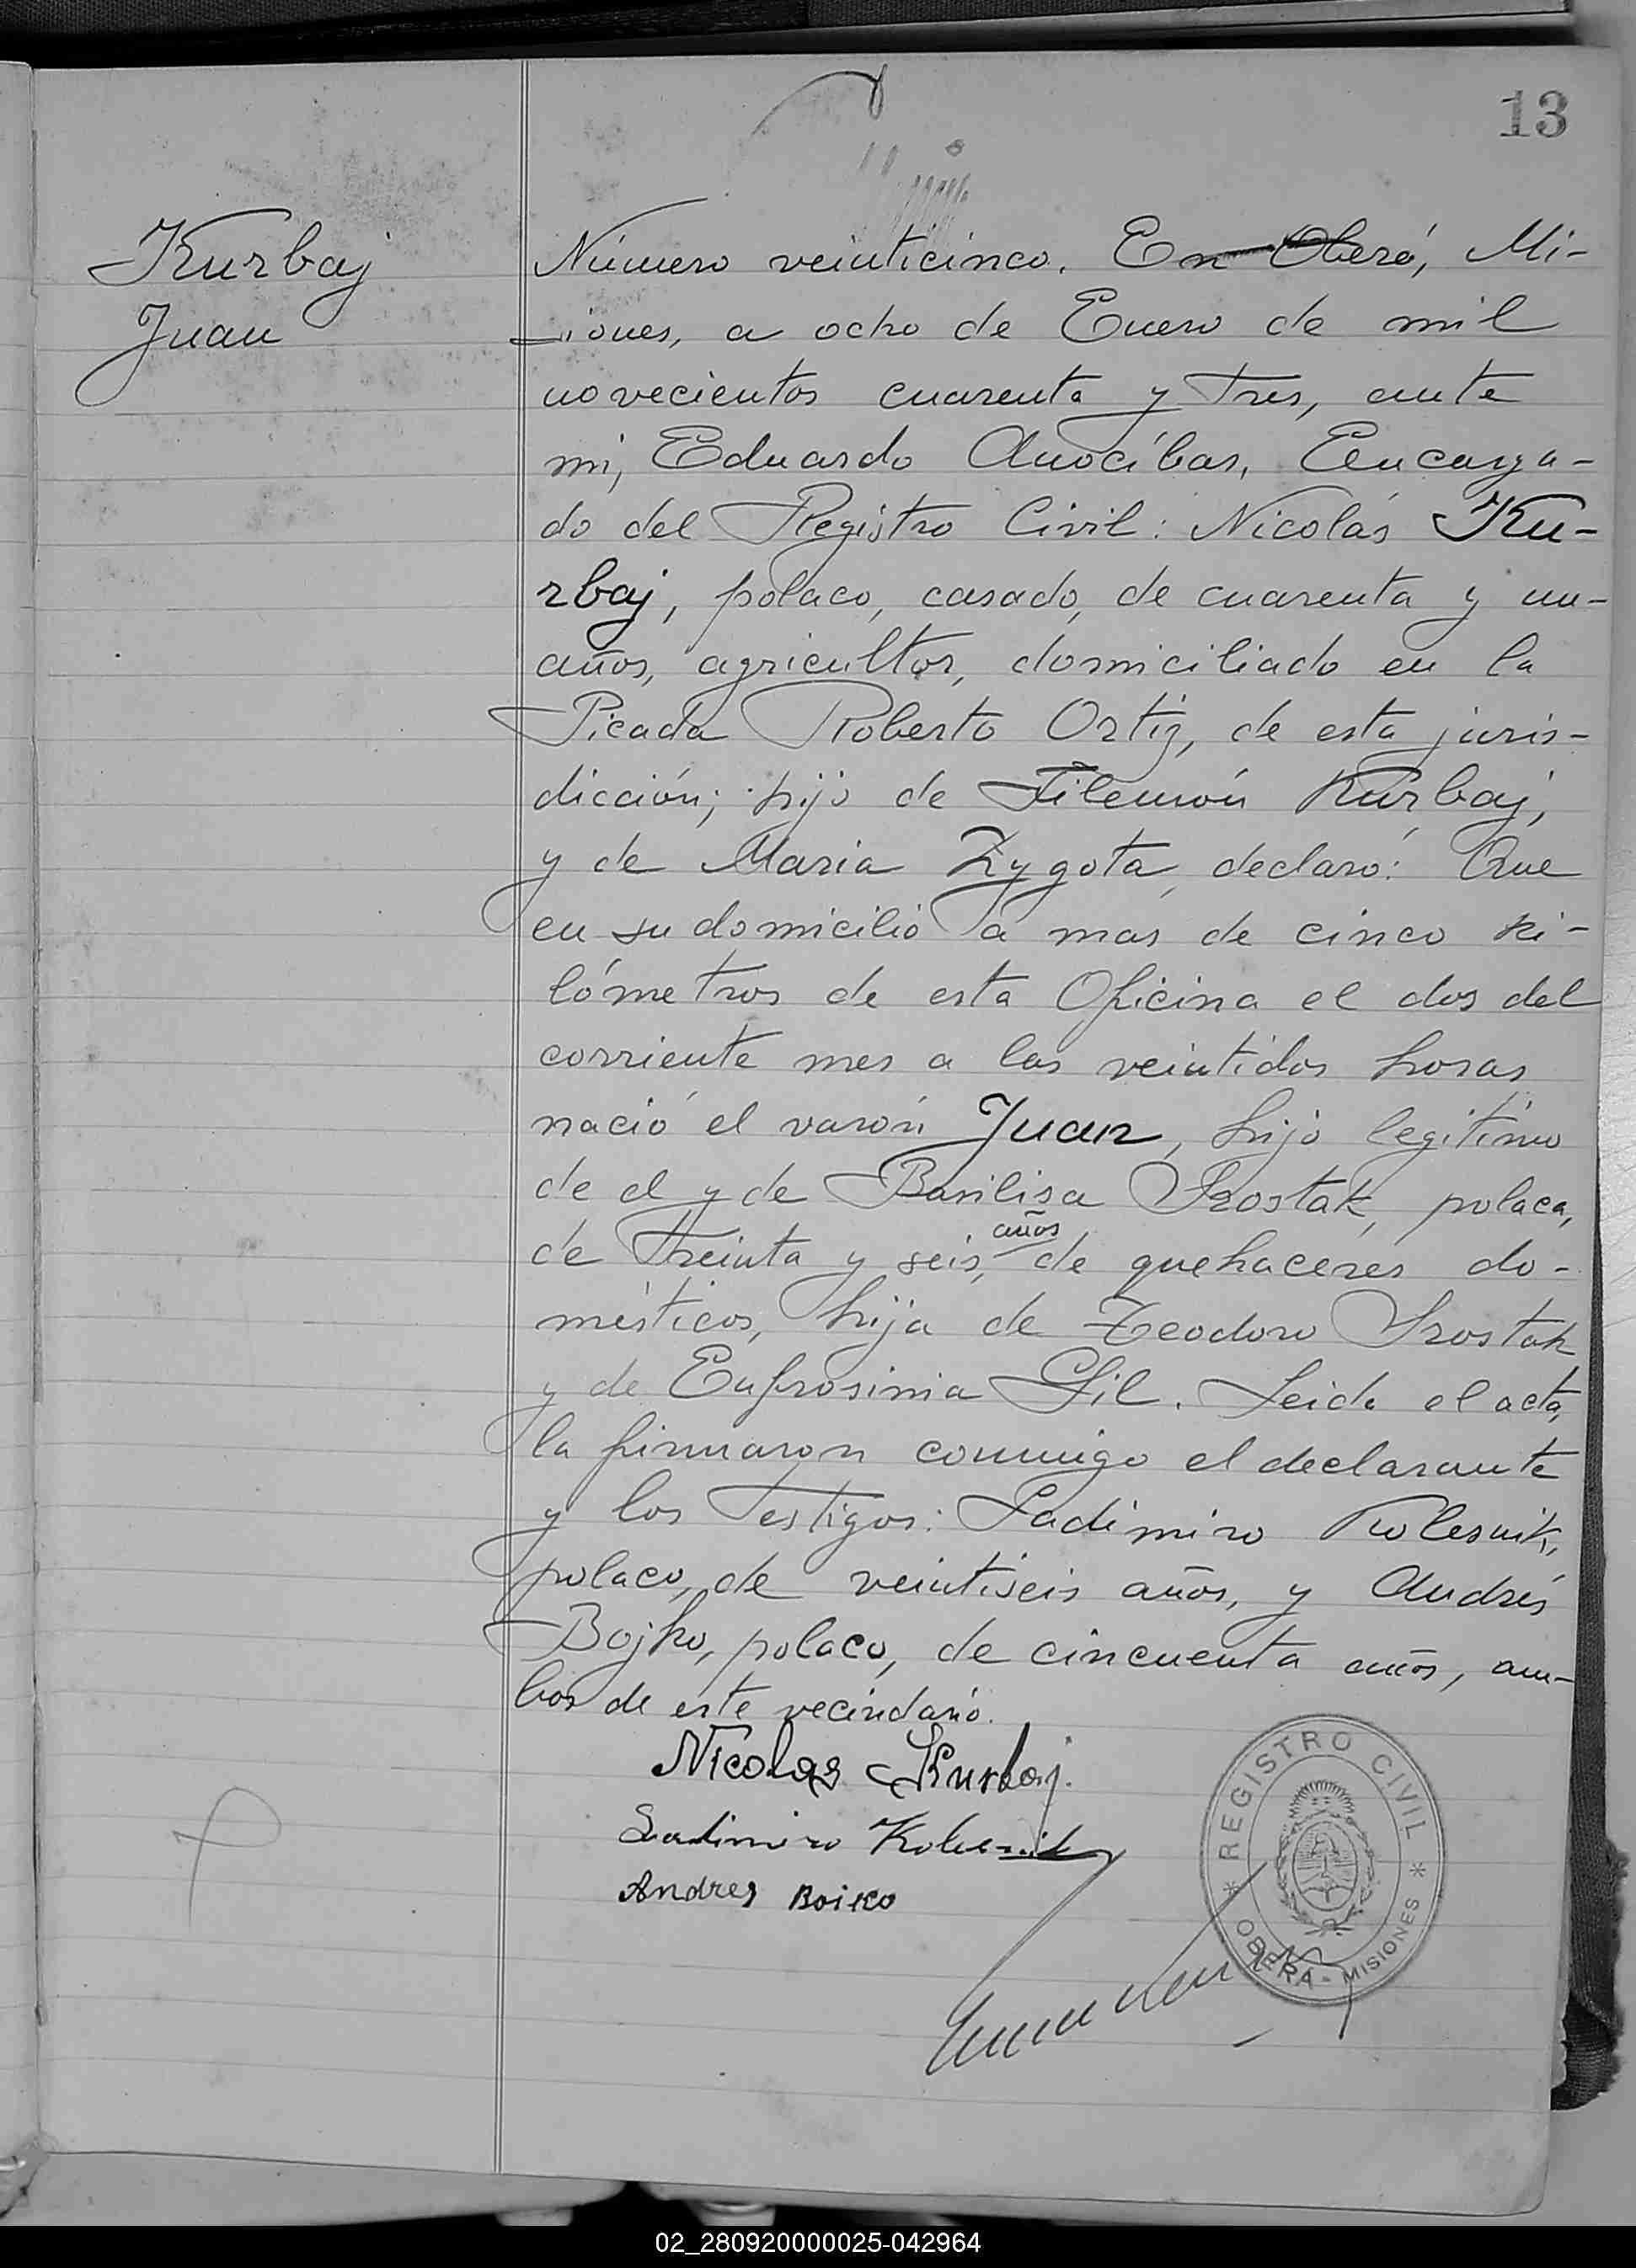 13
Kurbaj
Juan
Número veinticinco. En Oberá, Mi-
siones, a ocho de Enero de mil
novecientos cuarenta y tres, ante
mi, Eduardo Anocíbar, Encarga-
do del Registro Civil: Nicolás Ku-
rbaj, polaco, casado, de cuarenta y un-
años, agricultor, domiciliado en la
Picada Roberto Ortiz, de esta juris-
dicción; hijo de Filemón Kurbaj,
y de Maria Zygota, declaró: Que
en su domicilio a mas de cinco ki-
lómetros de esta Oficina el dos del
corriente mes a las veintidos horas
nació el varón Juan, hijo legitimo
de el y de Basilisa Szostak, polaca,
de treinta y seis, años de quehaceres do-
mésticos, hija de Teodoro Szostak
y de Eufrosinia Gil. Leida el acta,
la firmaron conmigo el declarante
y los testigos: Ladimiro Kolesnik,
polaco, de veintiseis años, y Andrés
Bojko, polaco, de cincuenta años, am-
bos de este vecindario.
Nicolas Kurbaj.
Ladimiro Kolesnik
Andres Boiko
REGISTRO CIVIL
OBERÁ - MISIONES
02_280920000025-042964